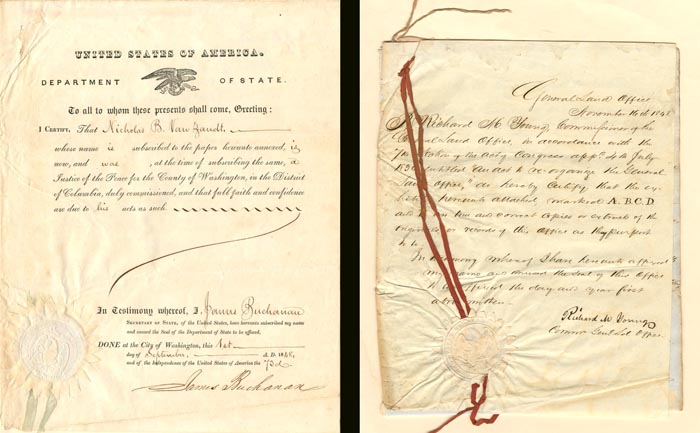 UNITED STATES OF AMERICA.
DEPARTMENT OF STATE.
To all to whom these presents shall come, Greeting:
I CERTIFY, That Nicholas B. Van Zandt,
whose name is subscribed to the paper hereunto annexed, is
now, and was, at the time of subscribing the same, a
Justice of the Peace for the County of Washington, in the District
of Columbia, duly commissioned, and that full faith and confidence
are due to his acts as such.
In Testimony whereof, I, James Buchanan
SECRETARY OF STATE, of the United States, have hereunto subscribed my name
and caused the Seal of the Department of State to be affixed.
DONE at the City of Washington, this
day of September, A.D. 1848,
and of the Independence of the United States of America the 73d.
James Buchanan
General Land Office
November 16th 1848
I Richard M Young, Commissioner of the
General Land Office, in accordance with the
of the act of Congress app 4th July
entitled An act to re-organize the General
Land Office," do hereby Certify, that the
hereunto attached, marked A. B. C. D
are true and correct copies or extracts of the
records of this office as they purport
to be
In testimony whereof I have hereunto affixed
my name and caused the seal of this Office
to be affixed the day and year first
above written.
Richard M Young
Office